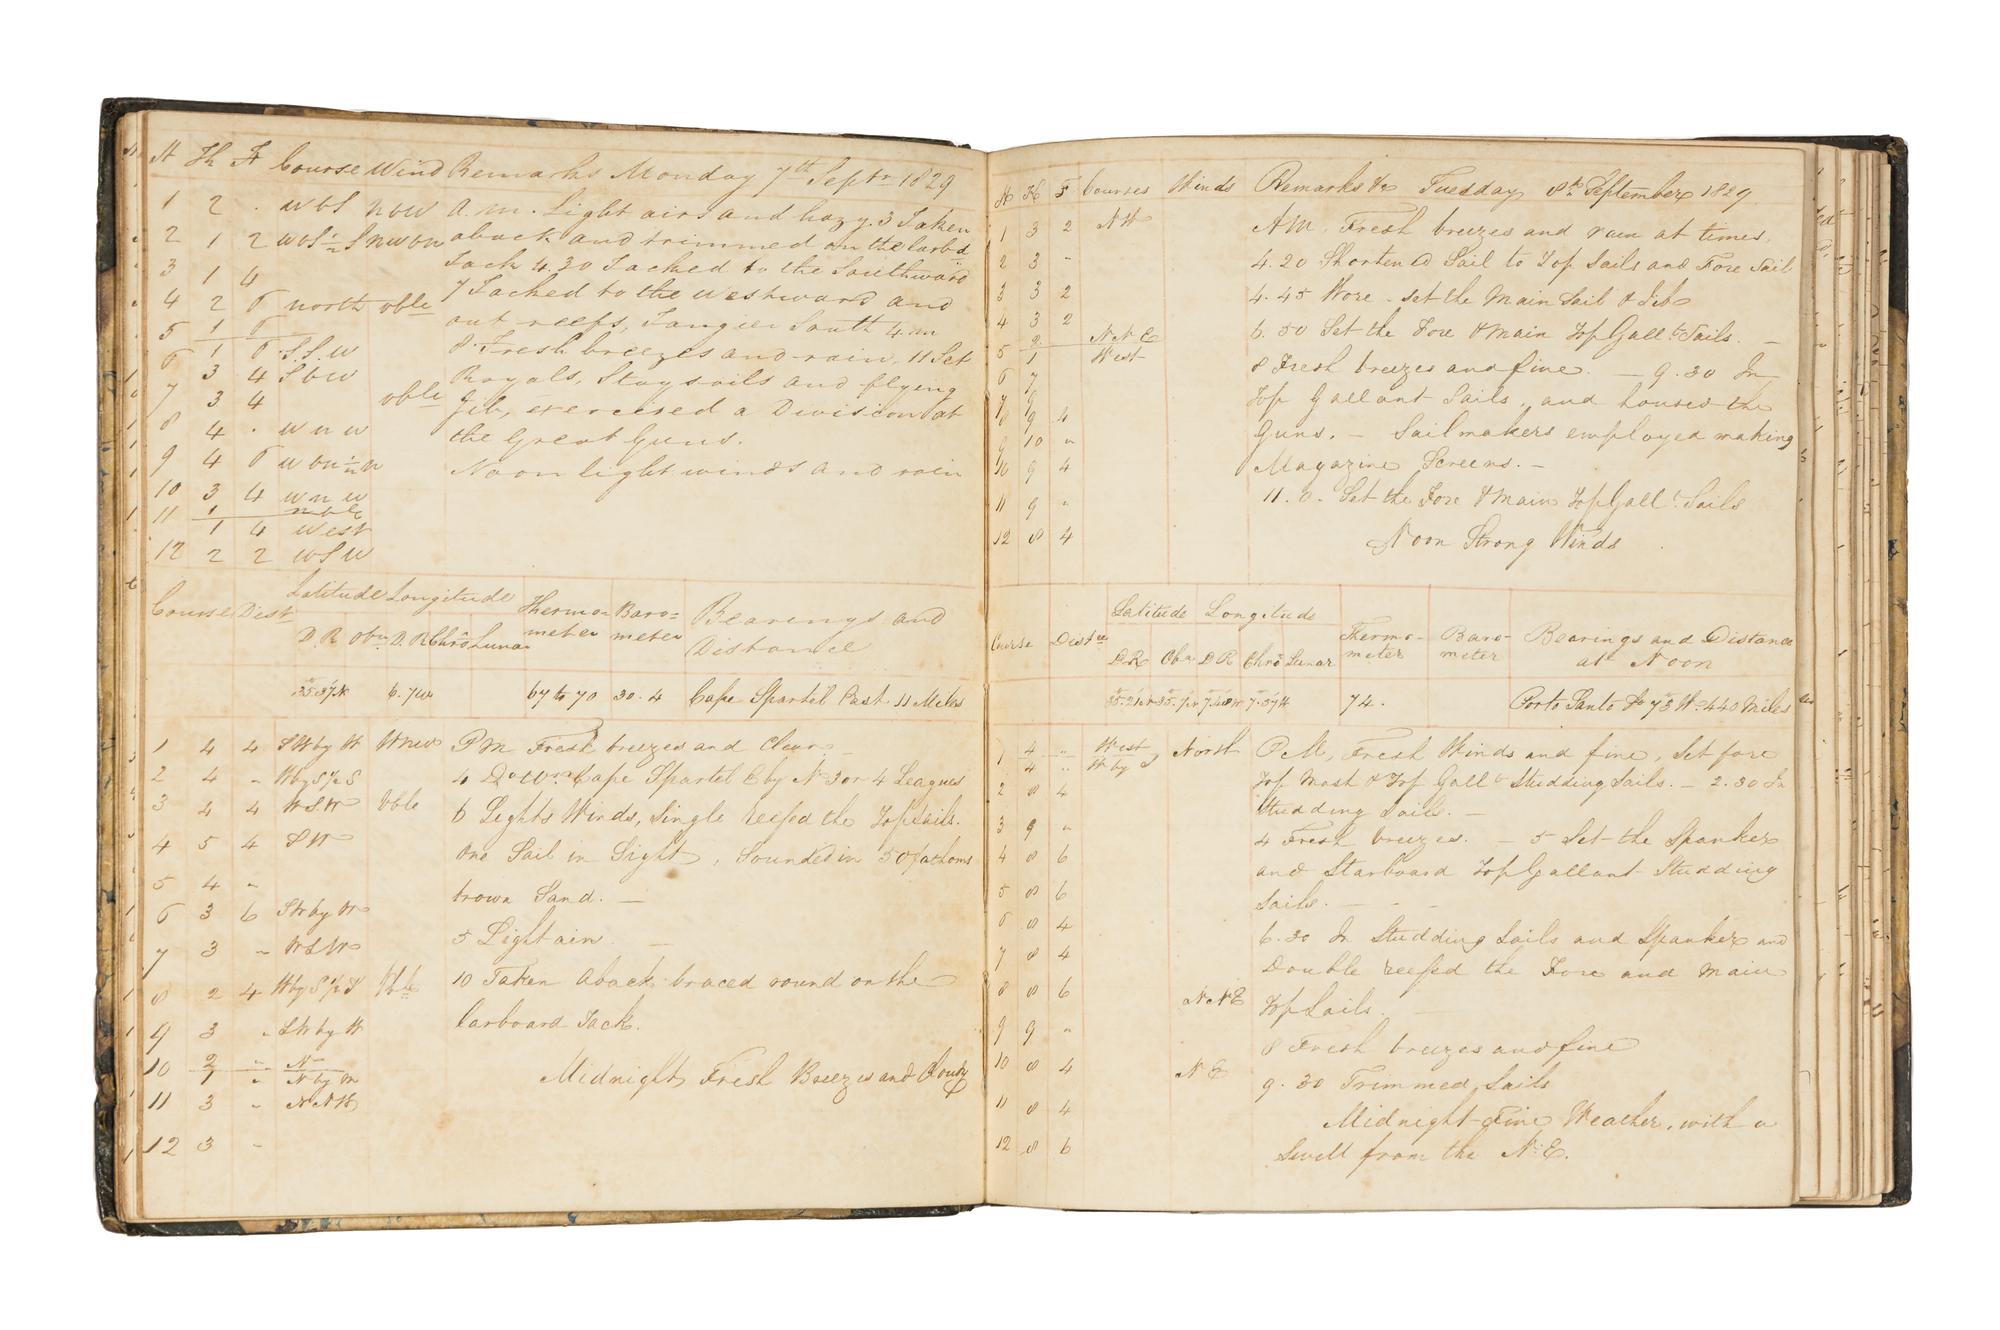 H Kn F Course Wind Remarks Monday 7th Septr 1829
1 2 . WbS NbW A.M. Light airs and hazy. 3 Taken
2 1 2 WbS½S NWbW aback and trimmed on the larbd
3 1 4 Tack 4.30 Tacked to the Southward
4 2 6 North vble 7 Tacked to the Westward and
5 1 6 out reefs, Tangier South 4 m
6 1 6 S.S.W 8 Fresh breezes and rain. 11 Set
3 4 SbW Royals, Staysails and flying
7 3 4 vble Jib, exercised a Division at
8 4 . WNW the Great Guns.
9 4 6 WbN½N Noon light winds and rain
10 3 4 WNW
11 1
1 4 West
12 2 2 WSW
Course Dist Latitude Longitude Thermo= meter Baro= meter Bearings and Distance
D.R Obn D.R Chro Lunar
35.37N 6.7W 67 to 70 30.4 Cape Spartel East 11 Miles
1 4 4 SW by W WNW PM Fresh breezes and Clear
2 4 " W by S½S 4 Do Wr. Cape Spartel E by N 3 or 4 Leagues
3 4 4 WSW Vble 6 Lights Winds, Single reefed the Topsails.
4 5 4 SW One Sail in Sight, Sounded in 50 fathoms
5 4 " brown Sand. —
6 3 6 SW by W 5 Light air —
7 3 " WSW
8 2 4 W by S½S Vble 10 Taken Aback braced round on the
9 3 " SW by W larboard Tack.
10 2 " N
1 " N by W Midnight Fresh Breezes and Cloudy
11 3 " NNW
12 3 "
H K F Courses Winds Remarks &c Tuesday 8th September 1829
1 3 2 NW AM. Fresh breezes and rain at times.
2 3 " 4.20 Shortened Sail to Top Sails and Fore Sail
3 3 2 4.45 Wore. set the Main Sail & Jib
4 3 2 6.50 Set the Fore & Main TopGallt Sails. —
5 2 NNE
1 West 8 Fresh breezes and fine. — 9.30 In
6 7 Top Gallant Sails, and housed the
7 9 Guns. — Sailmakers employed making
8 9 4 Magazine Screens. —
9 10 "
10 9 4 11.0. Set the Fore & Main TopGallt Sails
11 9 "
12 8 4 Noon Strong Winds
Course Distce Latitude Longitude Thermo- meter Baro- meter Bearings and Distance at Noon
DR Obn DR Chro Lunar
74. Porto Santo So 73 W. 440 Miles
1 4 " West North P.M, Fresh Winds and fine, Set fore
4 " W by S Top Mast & Top Gallt Studding Sails. — 2.30 In
2 8 4 Studding Sails. —
3 9 " 4 Fresh breezes. — 5 Set the Spanker
4 8 6 and Starboard TopGallant Studding
5 8 6 Sails. — - -
6 8 4 6.30 In Studding Sails and Spanker and
7 8 4 Double reefed the Fore and Main
8 8 6 NNE TopSails. —
9 9 " 8 Fresh breezes and fine
10 8 4 NE 9.30 Trimmed Sails
11 8 4 Midnight Fine Weather, with a
12 8 6 Swell from the N.E.